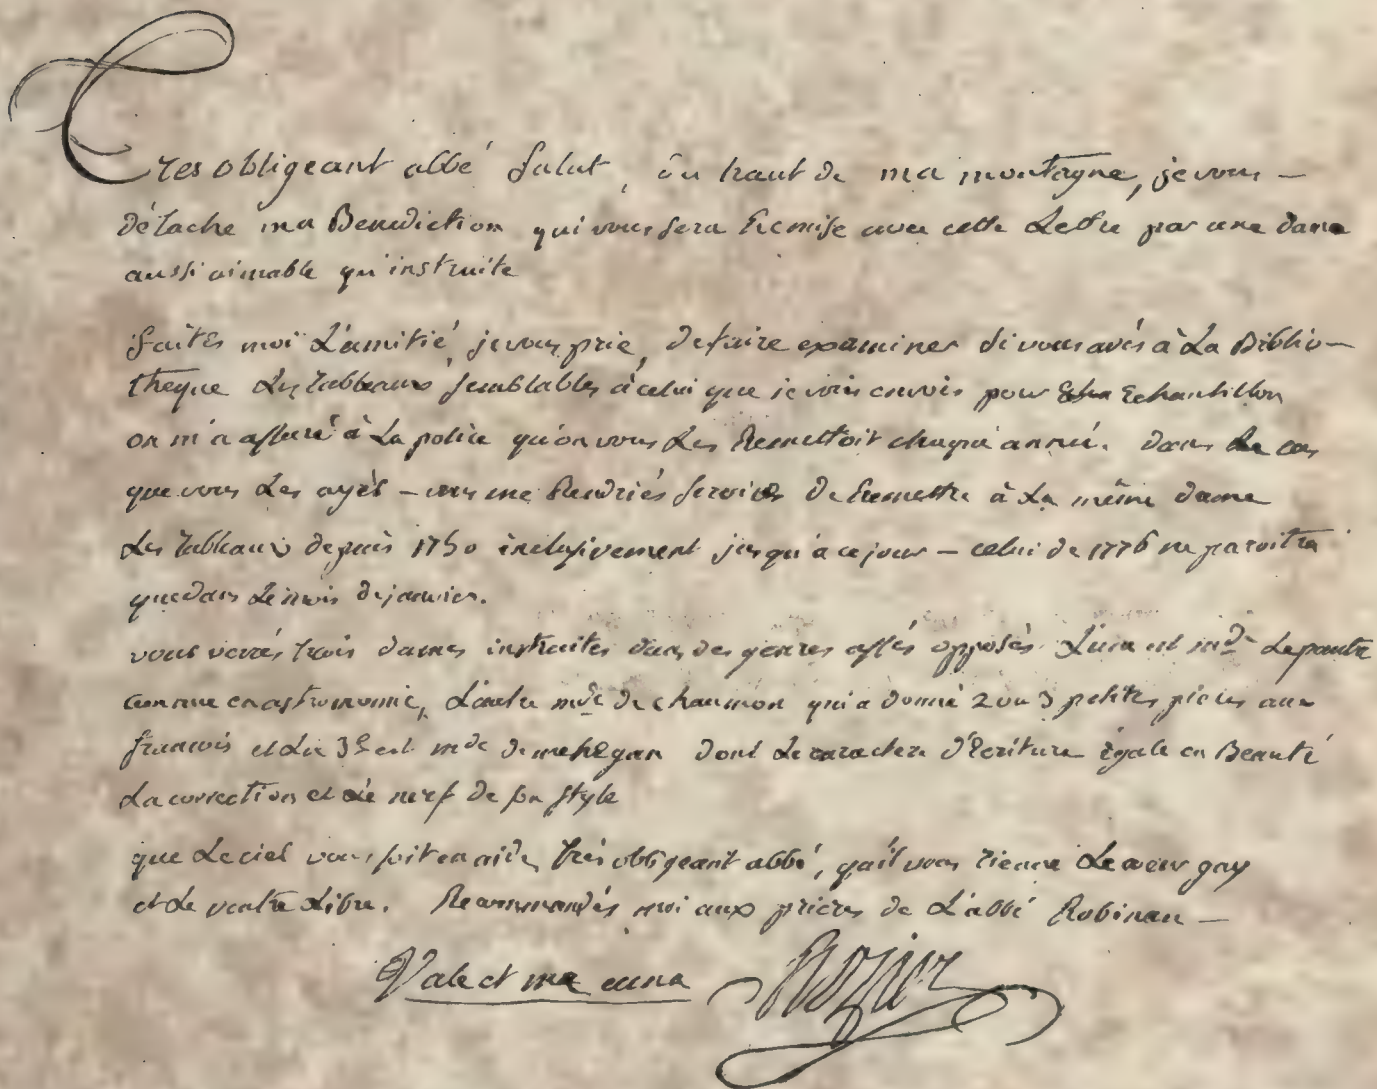 Tres obligeant abbé salut, du haut de ma montagne, je vous –
détache ma Benediction qui vous sera Remise avec cette Lettre par une dame
aussi aimable qu'instruite
faites moi L'amitié, je vous prie, de faire examiner si vous avés à La Biblio–
theque Les tableaux semblables à celui que je vous envois pour Echantillon
on m'a assuré à La police qu'on vous Les Remettoit chaque année. dans Le cas
que vous Les ayés – vous me Rendriés service de Remettre à La même dame
Les tableaux depuis 1750 inclusivement jusqu'a ce jour – celui de 1776 ne paroitra
que dans Le mois de janvier.
vous verrés trois dames instruites dans des genres assés opposés L'une est mde Lepaute
connue en astronomie, L'autre mde de chaumon qui a donné 2 ou 3 petites pieces aux
francois et La 3e est mde de mehegan dont Le caractere d'Ecriture égale en Beauté
La correction et Le nerf de son style
que Le ciel vous soit en aide, très obligeant abbé, qu'il vous tienne Le coeur gay
et Le ventre Libre. Recommandés moi aux prieres de L'abbé Robinau –
Vale et me ama Rozier